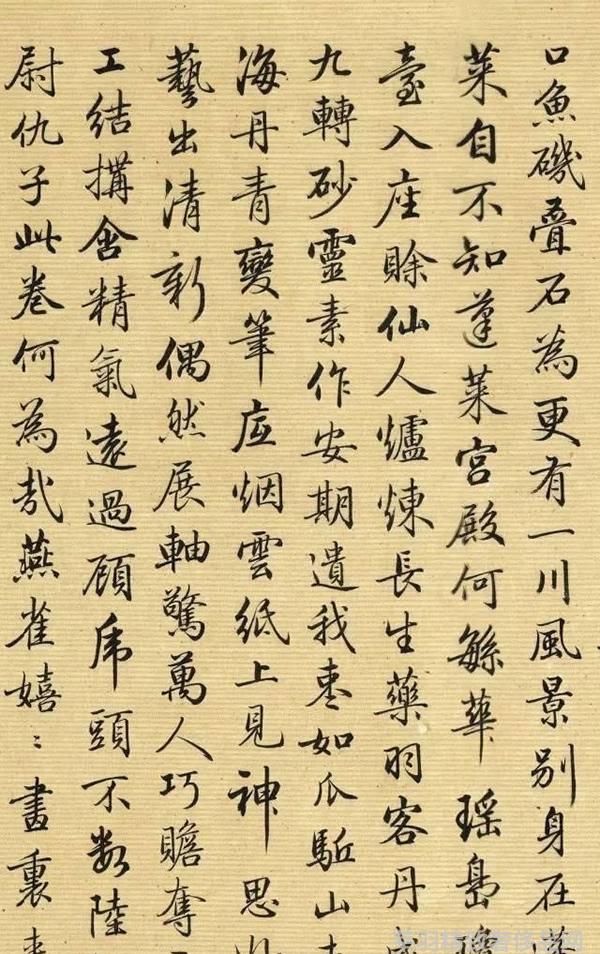 口魚磯叠石為更有一川風景别身在蓬
萊自不知蓬萊宮殿何繇華瑤島瓊
臺入座賒仙人爐煉長生藥羽客丹成
九轉砂靈素作安期遺我棗如瓜駈山
海丹青變筆底烟雲紙上見神思
藝出清新偶然展軸驚萬人巧贍奪
工結搆舍精氣遠過顧虎頭不数陸
尉仇子此卷何為哉燕雀嬉〻畫裏